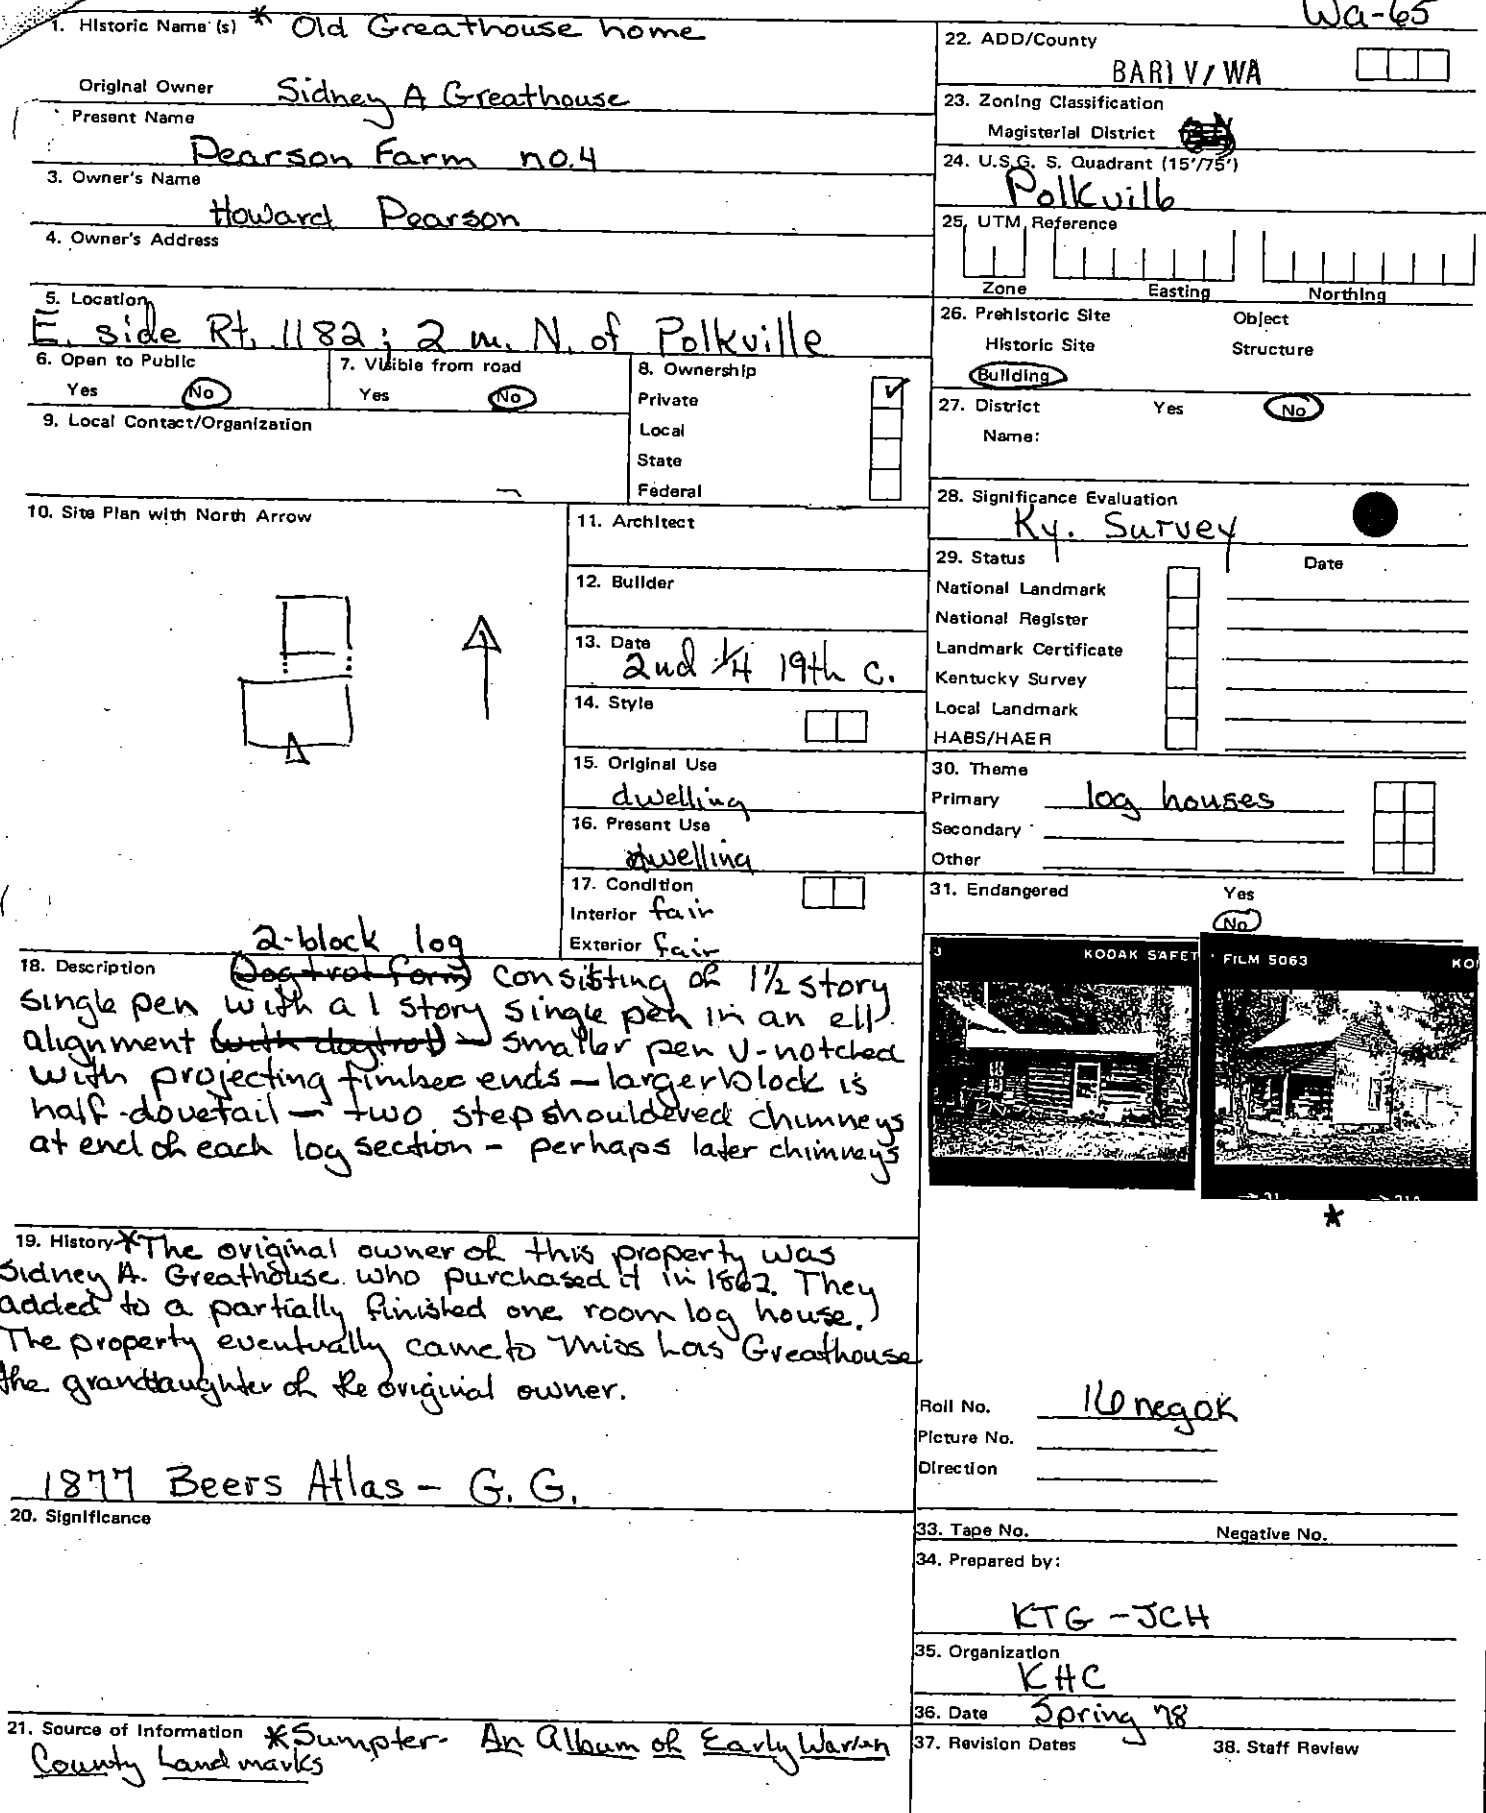 Wa-65
1. Historic Name (s) * Old Greathouse home
Original Owner Sidney A Greathouse
Present Name
Pearson Farm no.4
3. Owner's Name
Howard Pearson
4. Owner's Address
5. Location
E. side Rt. 1182; 2 m. N. of Polkville
6. Open to Public
Yes No
7. Visible from road
Yes No
8. Ownership
Private ✓
Local
State
Federal
9. Local Contact/Organization
10. Site Plan with North Arrow
11. Architect
12. Builder
13. Date
2nd 1/4 19th c.
14. Style
15. Original Use
dwelling
16. Present Use
dwelling
17. Condition
Interior fair
Exterior fair
2-block log
18. Description (Dogtrot form) consisting of 1½ story
single pen with a 1 story single pen in an ell
alignment (with dogtrot) - smaller pen V-notched
with projecting timber ends - larger block is
half-dovetail - two step shouldered chimneys
at end of each log section - perhaps later chimneys
19. History * The original owner of this property was
Sidney A. Greathouse who purchased it in 1862. They
added to a partially finished one room log house.
The property eventually came to Miss Lois Greathouse
the granddaughter of the original owner.
1877 Beers Atlas - G. G.
20. Significance
21. Source of Information *Sumpter- An Album of Early Warren
County Landmarks
22. ADD/County
BARIV/WA
23. Zoning Classification
Magisterial District
24. U.S.G. S. Quadrant (15'/75')
Polkville
25. UTM Reference
Zone Easting Northing
26. Prehistoric Site Object
Historic Site Structure
Building
27. District Yes No
Name:
28. Significance Evaluation
Ky. Survey
29. Status Date
National Landmark
National Register
Landmark Certificate
Kentucky Survey
Local Landmark
HABS/HAER
30. Theme
Primary log houses
Secondary
Other
31. Endangered Yes
No
KODAK SAFET
FILM 5063 KO
*
Roll No. 16 neg ok
Picture No.
Direction
33. Tape No. Negative No.
34. Prepared by:
KTG - JCH
35. Organization
KHC
36. Date Spring 78
37. Revision Dates 38. Staff Review